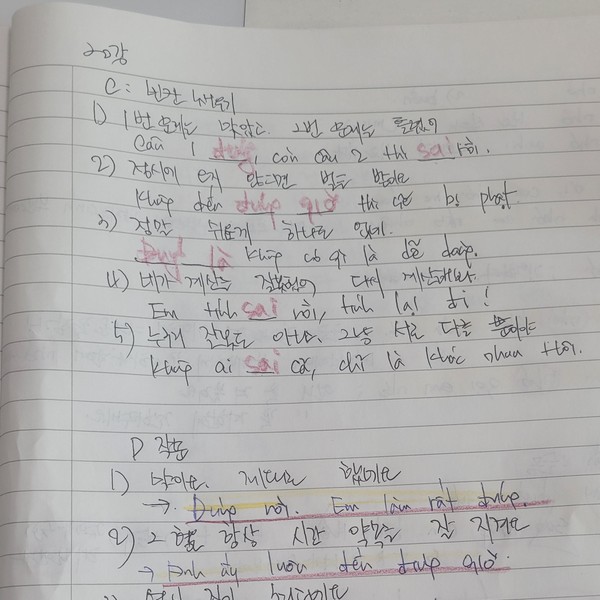 20강
C: 빈칸 채우기
1) 1번 문제는 맞았고 2번 문제는 틀렸어
Câu 1 đúng, còn câu 2 thì sai rồi.
2) 정시에 오지 않으면 벌을 받아요
Không đến đúng giờ thì sẽ bị phạt.
3) 정말 쉬운게 하나도 없네.
Đúng là không có gì là dễ dàng.
4) 네가 계산을 잘못했어 다시 계산해봐
Em tính sai rồi, tính lại đi!
5) 누구의 잘못도 아냐. 그냥 서로 다를 뿐이야
Không ai sai cả, chỉ là khác nhau thôi.
D 작문
1) 맞아요. 제대로 했네요
→ Đúng rồi. Em làm rất đúng.
2) 그 형은 항상 시간 약속을 잘 지켜요
→ Anh ấy luôn đến đúng giờ.